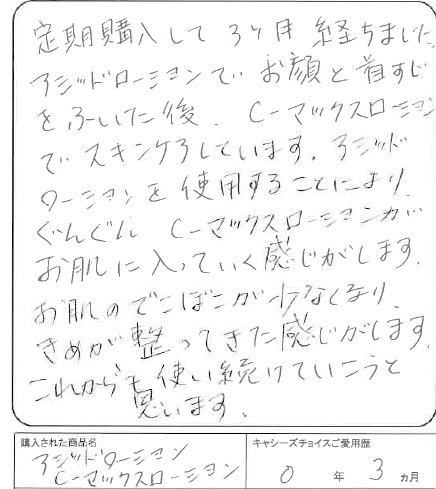 定期購入して3ヶ月経ちました。
アシッドローションでお顔と首すじ
をふいた後、C-マックスローション
でスキンケアしています。アシッド
ローションを使用することにより、
ぐんぐんC-マックスローションが
お肌に入っていく感じがします。
お肌のでこぼこが少なくなり、
きめが整ってきた感じがします。
これからも使い続けていこうと
思います。
購入された商品名
アシッドローション
C-マックスローション
キャシーズチョイスご愛用歴
0年3ヵ月